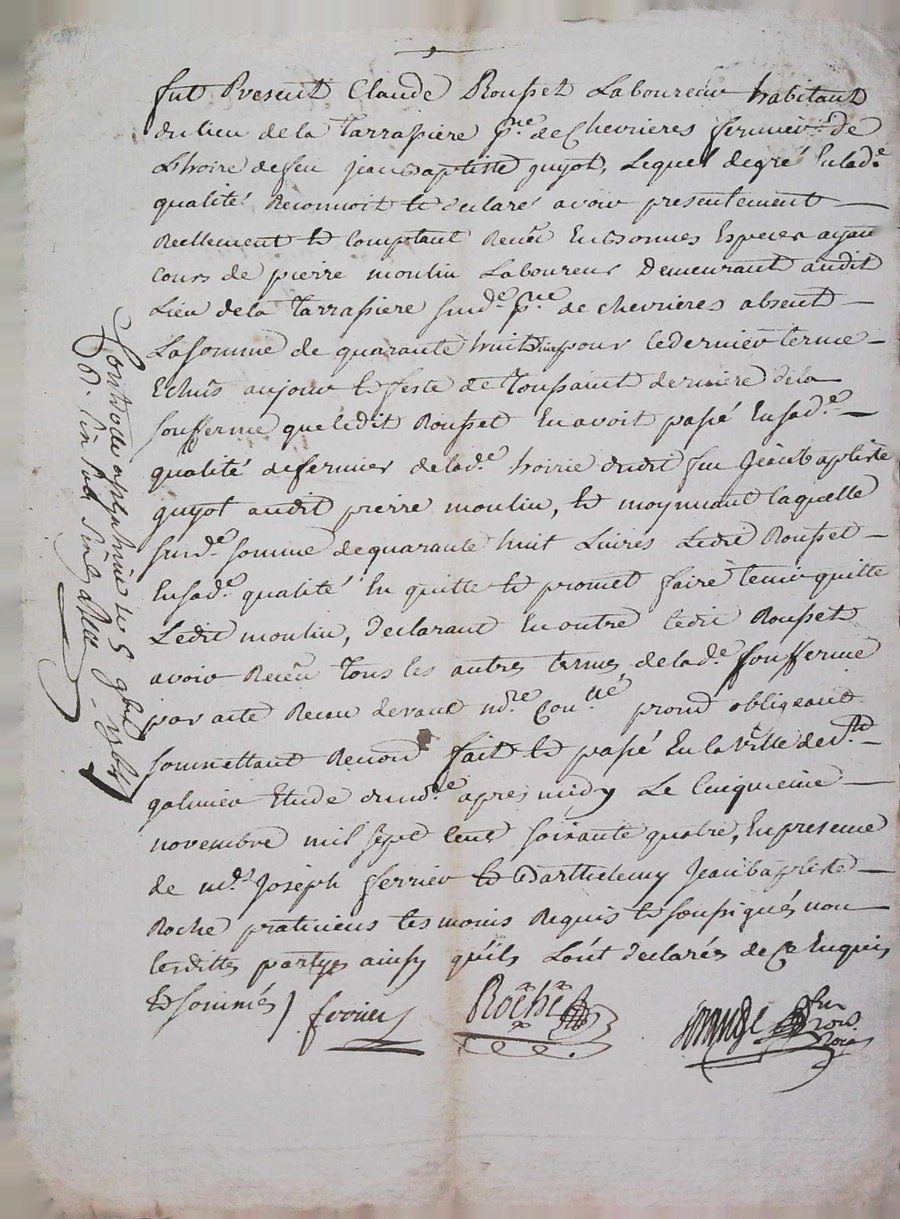 fut Present Claude Rousset Laboureur habitant
du lieu de la Tarrasiere p.ne de Chevrieres fermier de
L'hoire de feu jean baptiste guyot, Lequel de gré En lad.e
qualité Reconnoit et declaré avoir presentement —
Reellement et Comptant Receu En bonnes Especes ayant
cours de pierre moulin Laboureur Demeurant audit
Lieu dela Tarrasiere susd.e p.ne de chevrieres absent —
La somme de quarante huit livres pour le dernier terme —
Echus au jour et feste de Toussaint derniere de la
sousferme que ledit Rousset En avoit passé En sad.e —
qualité de fermier de lad.e hoirie dudit feu Jean baptiste
guyot audit pierre moulin, et moynnant laquelle
susd.e somme de quarante huit Livres Ledit Rousset —
En sad.e qualité En quitte et promet faire tenir quitte
Ledit moulin, Declarant En outre ledit Rousset
avoir Receu Tous les autres termes de lad.e sousferme
par acte Receu devant nd.re
prom obligeant
soumettant Renon fait et passé En la ville de St —
galmier Etude dud.re apres midy Le Cinquieme —
novembre mil sept Cent soixante quatre, En presence
de m.es Joseph ferrier et Barthelemy Jean baptiste —
Roche praticiens temoins Requis et soussignés non
lesdittes partyes ainsy qu'ils L'ont declarés de Ce Enquis
et sommés /
ferrier
Roche